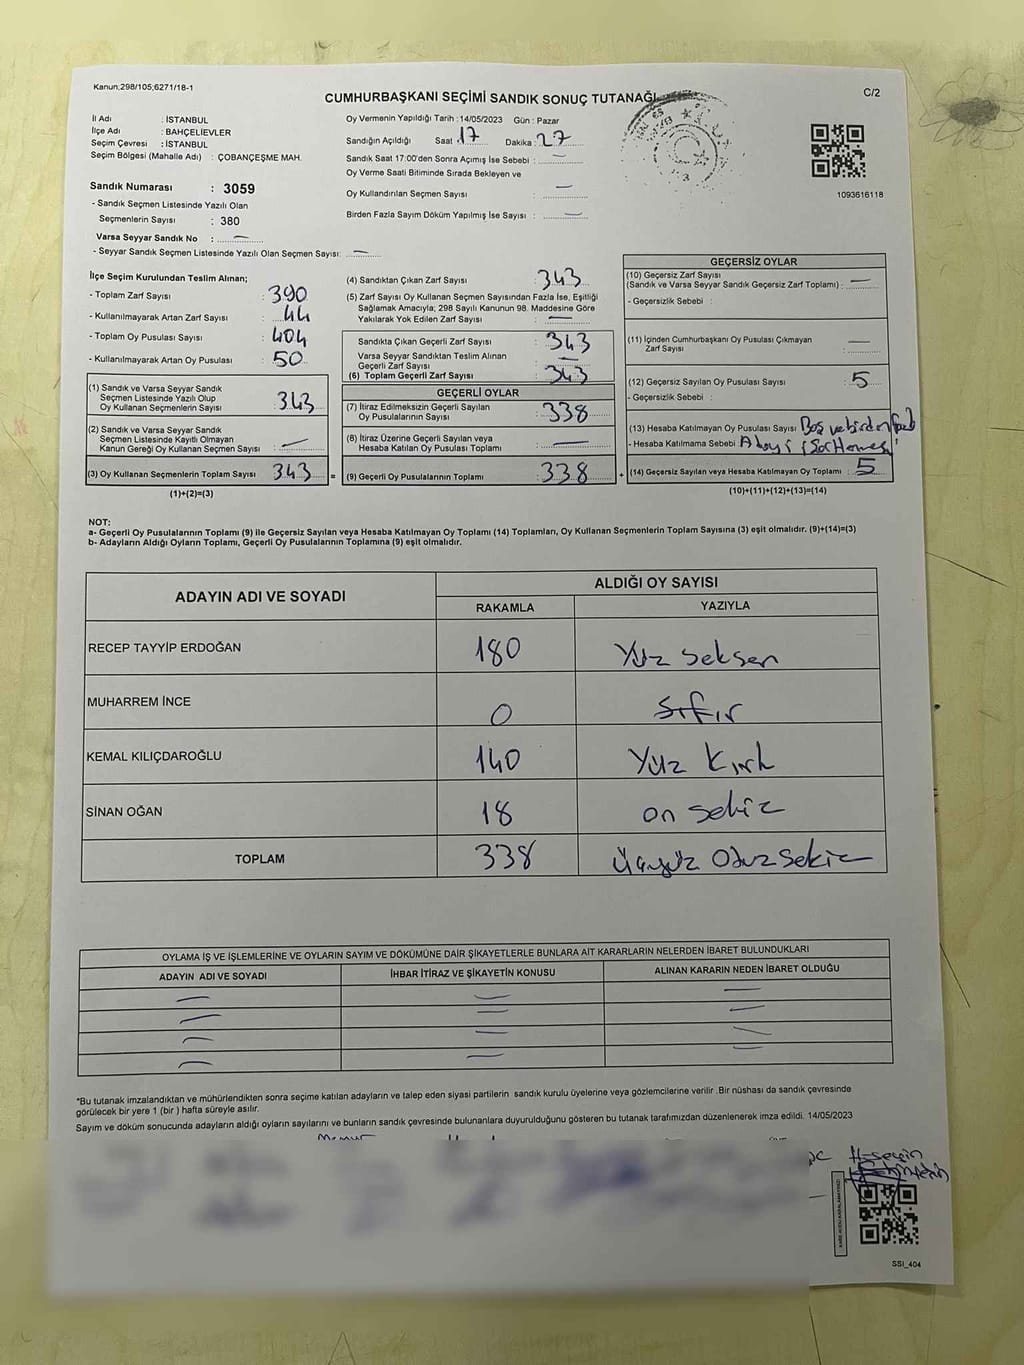 Kanun;298/105;6271/18-1
C/2
CUMHURBAŞKANI SEÇİMİ SANDIK SONUÇ TUTANAĞI
İl Adı : İSTANBUL
İlçe Adı : BAHÇELİEVLER
Seçim Çevresi : İSTANBUL
Seçim Bölgesi (Mahalle Adı) : ÇOBANÇEŞME MAH.
Sandık Numarası : 3059
- Sandık Seçmen Listesinde Yazılı Olan
Seçmenlerin Sayısı : 380
Varsa Seyyar Sandık No :
- Seyyar Sandık Seçmen Listesinde Yazılı Olan Seçmen Sayısı:
Oy Vermenin Yapıldığı Tarih :14/05/2023 Gün : Pazar
Sandığın Açıldığı Saat 17 Dakika : 27
Sandık Saat 17:00'den Sonra Açımış İse Sebebi :
Oy Verme Saati Bitiminde Sırada Bekleyen ve
Oy Kullandırılan Seçmen Sayısı :
Birden Fazla Sayım Döküm Yapılmış İse Sayısı :
1093616118
İlçe Seçim Kurulundan Teslim Alınan;
- Toplam Zarf Sayısı : 390
- Kullanılmayarak Artan Zarf Sayısı : 44
- Toplam Oy Pusulası Sayısı : 404
- Kullanılmayarak Artan Oy Pusulası : 50
(1) Sandık ve Varsa Seyyar Sandık
Seçmen Listesinde Yazılı Olup
Oy Kullanan Seçmenlerin Sayısı : 343
(2) Sandık ve Varsa Seyyar Sandık
Seçmen Listesinde Kayıtlı Olmayan
Kanun Gereği Oy Kullanan Seçmen Sayısı :
(3) Oy Kullanan Seçmenlerin Toplam Sayısı : 343 =
(1)+(2)=(3)
(4) Sandıktan Çıkan Zarf Sayısı : 343
(5) Zarf Sayısı Oy Kullanan Seçmen Sayısından Fazla İse, Eşitliği
Sağlamak Amacıyla; 298 Sayılı Kanunun 98. Maddesine Göre
Yakılarak Yok Edilen Zarf Sayısı :
Sandıkta Çıkan Geçerli Zarf Sayısı : 343
Varsa Seyyar Sandıktan Teslim Alınan
Geçerli Zarf Sayısı :
(6) Toplam Geçerli Zarf Sayısı : 343
GEÇERLİ OYLAR
(7) İtiraz Edilmeksizin Geçerli Sayılan
Oy Pusulalarının Sayısı : 338
(8) İtiraz Üzerine Geçerli Sayılan veya
Hesaba Katılan Oy Pusulası Toplamı :
(9) Geçerli Oy Pusulalarının Toplamı : 338 +
GEÇERSİZ OYLAR
(10) Geçersiz Zarf Sayısı
(Sandık ve Varsa Seyyar Sandık Geçersiz Zarf Toplamı) :
- Geçersizlik Sebebi :
(11) İçinden Cumhurbaşkanı Oy Pusulası Çıkmayan
Zarf Sayısı :
(12) Geçersiz Sayılan Oy Pusulası Sayısı : 5
- Geçersizlik Sebebi :
(13) Hesaba Katılmayan Oy Pusulası Sayısı : Boş ve birden
- Hesaba Katılmama Sebebi :
(14) Geçersiz Sayılan veya Hesaba Katılmayan Oy Toplamı : 5
(10)+(11)+(12)+(13)=(14)
NOT:
a- Geçerli Oy Pusulalarının Toplamı (9) ile Geçersiz Sayılan veya Hesaba Katılmayan Oy Toplamı (14) Toplamları, Oy Kullanan Seçmenlerin Toplam Sayısına (3) eşit olmalıdır. (9)+(14)=(3)
b- Adayların Aldığı Oyların Toplamı, Geçerli Oy Pusulalarının Toplamına (9) eşit olmalıdır.
ADAYIN ADI VE SOYADI
ALDIĞI OY SAYISI
RAKAMLA YAZIYLA
RECEP TAYYİP ERDOĞAN 180 Yüz Seksen
MUHARREM İNCE 0 Sıfır
KEMAL KILIÇDAROĞLU 140 Yüz Kırk
SİNAN OĞAN 18 on sekiz
TOPLAM 338 Üçyüz Otuz sekiz
OYLAMA İŞ VE İŞLEMLERİNE VE OYLARIN SAYIM VE DÖKÜMÜNE DAİR ŞİKAYETLERLE BUNLARA AİT KARARLARIN NELERDEN İBARET BULUNDUKLARI
ADAYIN ADI VE SOYADI İHBAR İTİRAZ VE ŞİKAYETİN KONUSU ALINAN KARARIN NEDEN İBARET OLDUĞU
*Bu tutanak imzalandıktan ve mühürlendikten sonra seçime katılan adayların ve talep eden siyasi partilerin sandık kurulu üyelerine veya gözlemcilerine verilir .Bir nüshası da sandık çevresinde
görülecek bir yere 1 (bir ) hafta süreyle asılır.
Sayım ve döküm sonucunda adayların aldığı oyların sayılarını ve bunların sandık çevresinde bulunanlara duyurulduğunu gösteren bu tutanak tarafımızdan düzenlenerek imza edildi. 14/05/2023
Hüseyin
SSI_404